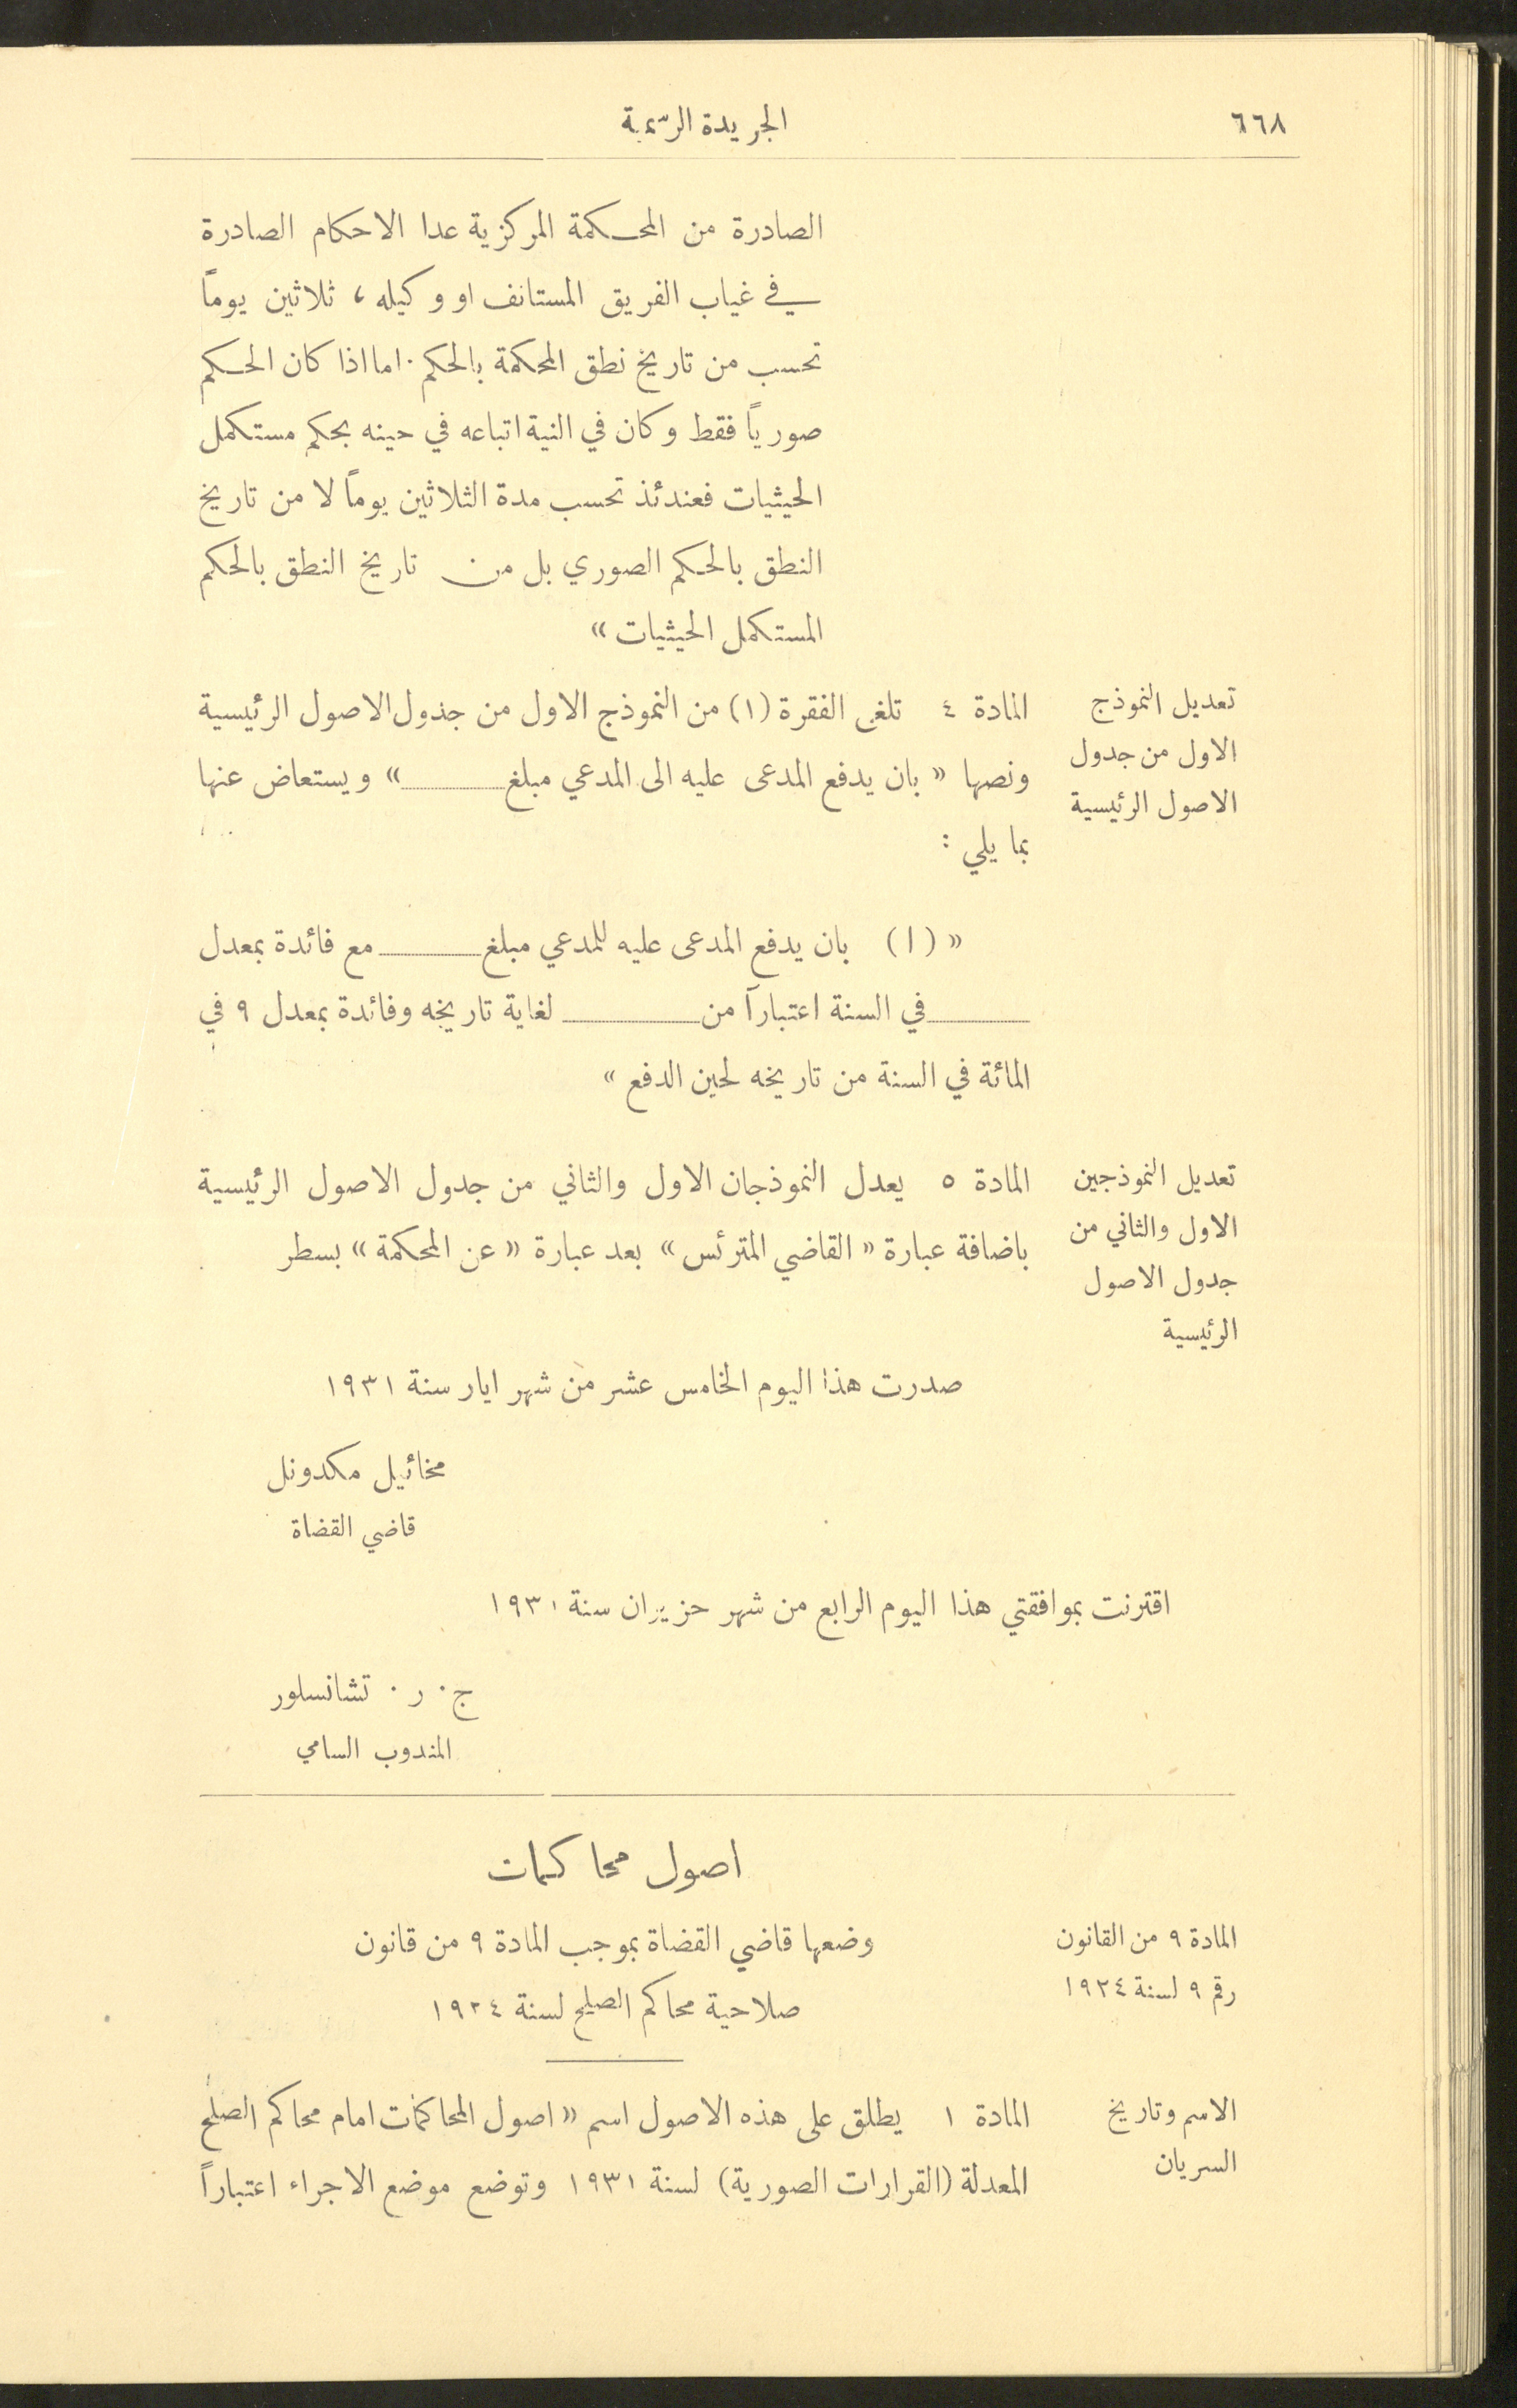 ٦٦٨
الجريدة الرسمية
الصادرة من المحكمة المركزية عدا الاحكام الصادرة
في غياب الفريق المستانف او وكيله ، ثلاثين يوماً
تحسب من تاريخ نطق المحكمة بالحكم . اما اذا كان الحكم
صورياً فقط وكان في النية اتباعه في حينه بحكم مستكمل
الحيثيات فعندئذ تحسب مدة الثلاثين يوماً لا من تاريخ
النطق بالحكم الصوري بل من تاريخ النطق بالحكم
المستكمل الحيثيات »
تعديل النموذج
الاول من جدول
الاصول الرئيسية
المادة ٤ تلغى الفقرة (١) من النموذج الاول من جدول الاصول الرئيسية
ونصها « بان يدفع المدعى عليه الى المدعي مبلغ ـــــــ » ويستعاض عنها
بما يلي :
« (١) بان يدفع المدعى عليه للمدعي مبلغ ـــــــ مع فائدة بمعدل
ـــــــ في السنة اعتباراً من ـــــــ لغاية تاريخه وفائدة بمعدل ٩ في
المائة في السنة من تاريخه لحين الدفع »
تعديل النموذجين
الاول والثاني من
جدول الاصول
الرئيسية
المادة ٥ يعدل النموذجان الاول والثاني من جدول الاصول الرئيسية
باضافة عبارة « القاضي المترئس » بعد عبارة « عن المحكمة » بسطر
صدرت هذا اليوم الخامس عشر من شهر ايار سنة ١٩٣١
مخائيل مكدونل
قاضي القضاة
اقترنت بموافقتي هذا اليوم الرابع من شهر حزيران سنة ١٩٣١
ج . ر . تشانسلور
المندوب السامي
اصول محاكمات
المادة ٩ من القانون
رقم ٩ لسنة ١٩٢٤
وضعها قاضي القضاة بموجب المادة ٩ من قانون
صلاحية محاكم الصلح لسنة ١٩٢٤
الاسم وتاريخ
السريان
المادة ١ يطلق على هذه الاصول اسم « اصول المحاكمات امام محاكم الصلح
المعدلة (القرارات الصورية) لسنة ١٩٣١ وتوضع موضع الاجراء اعتباراً